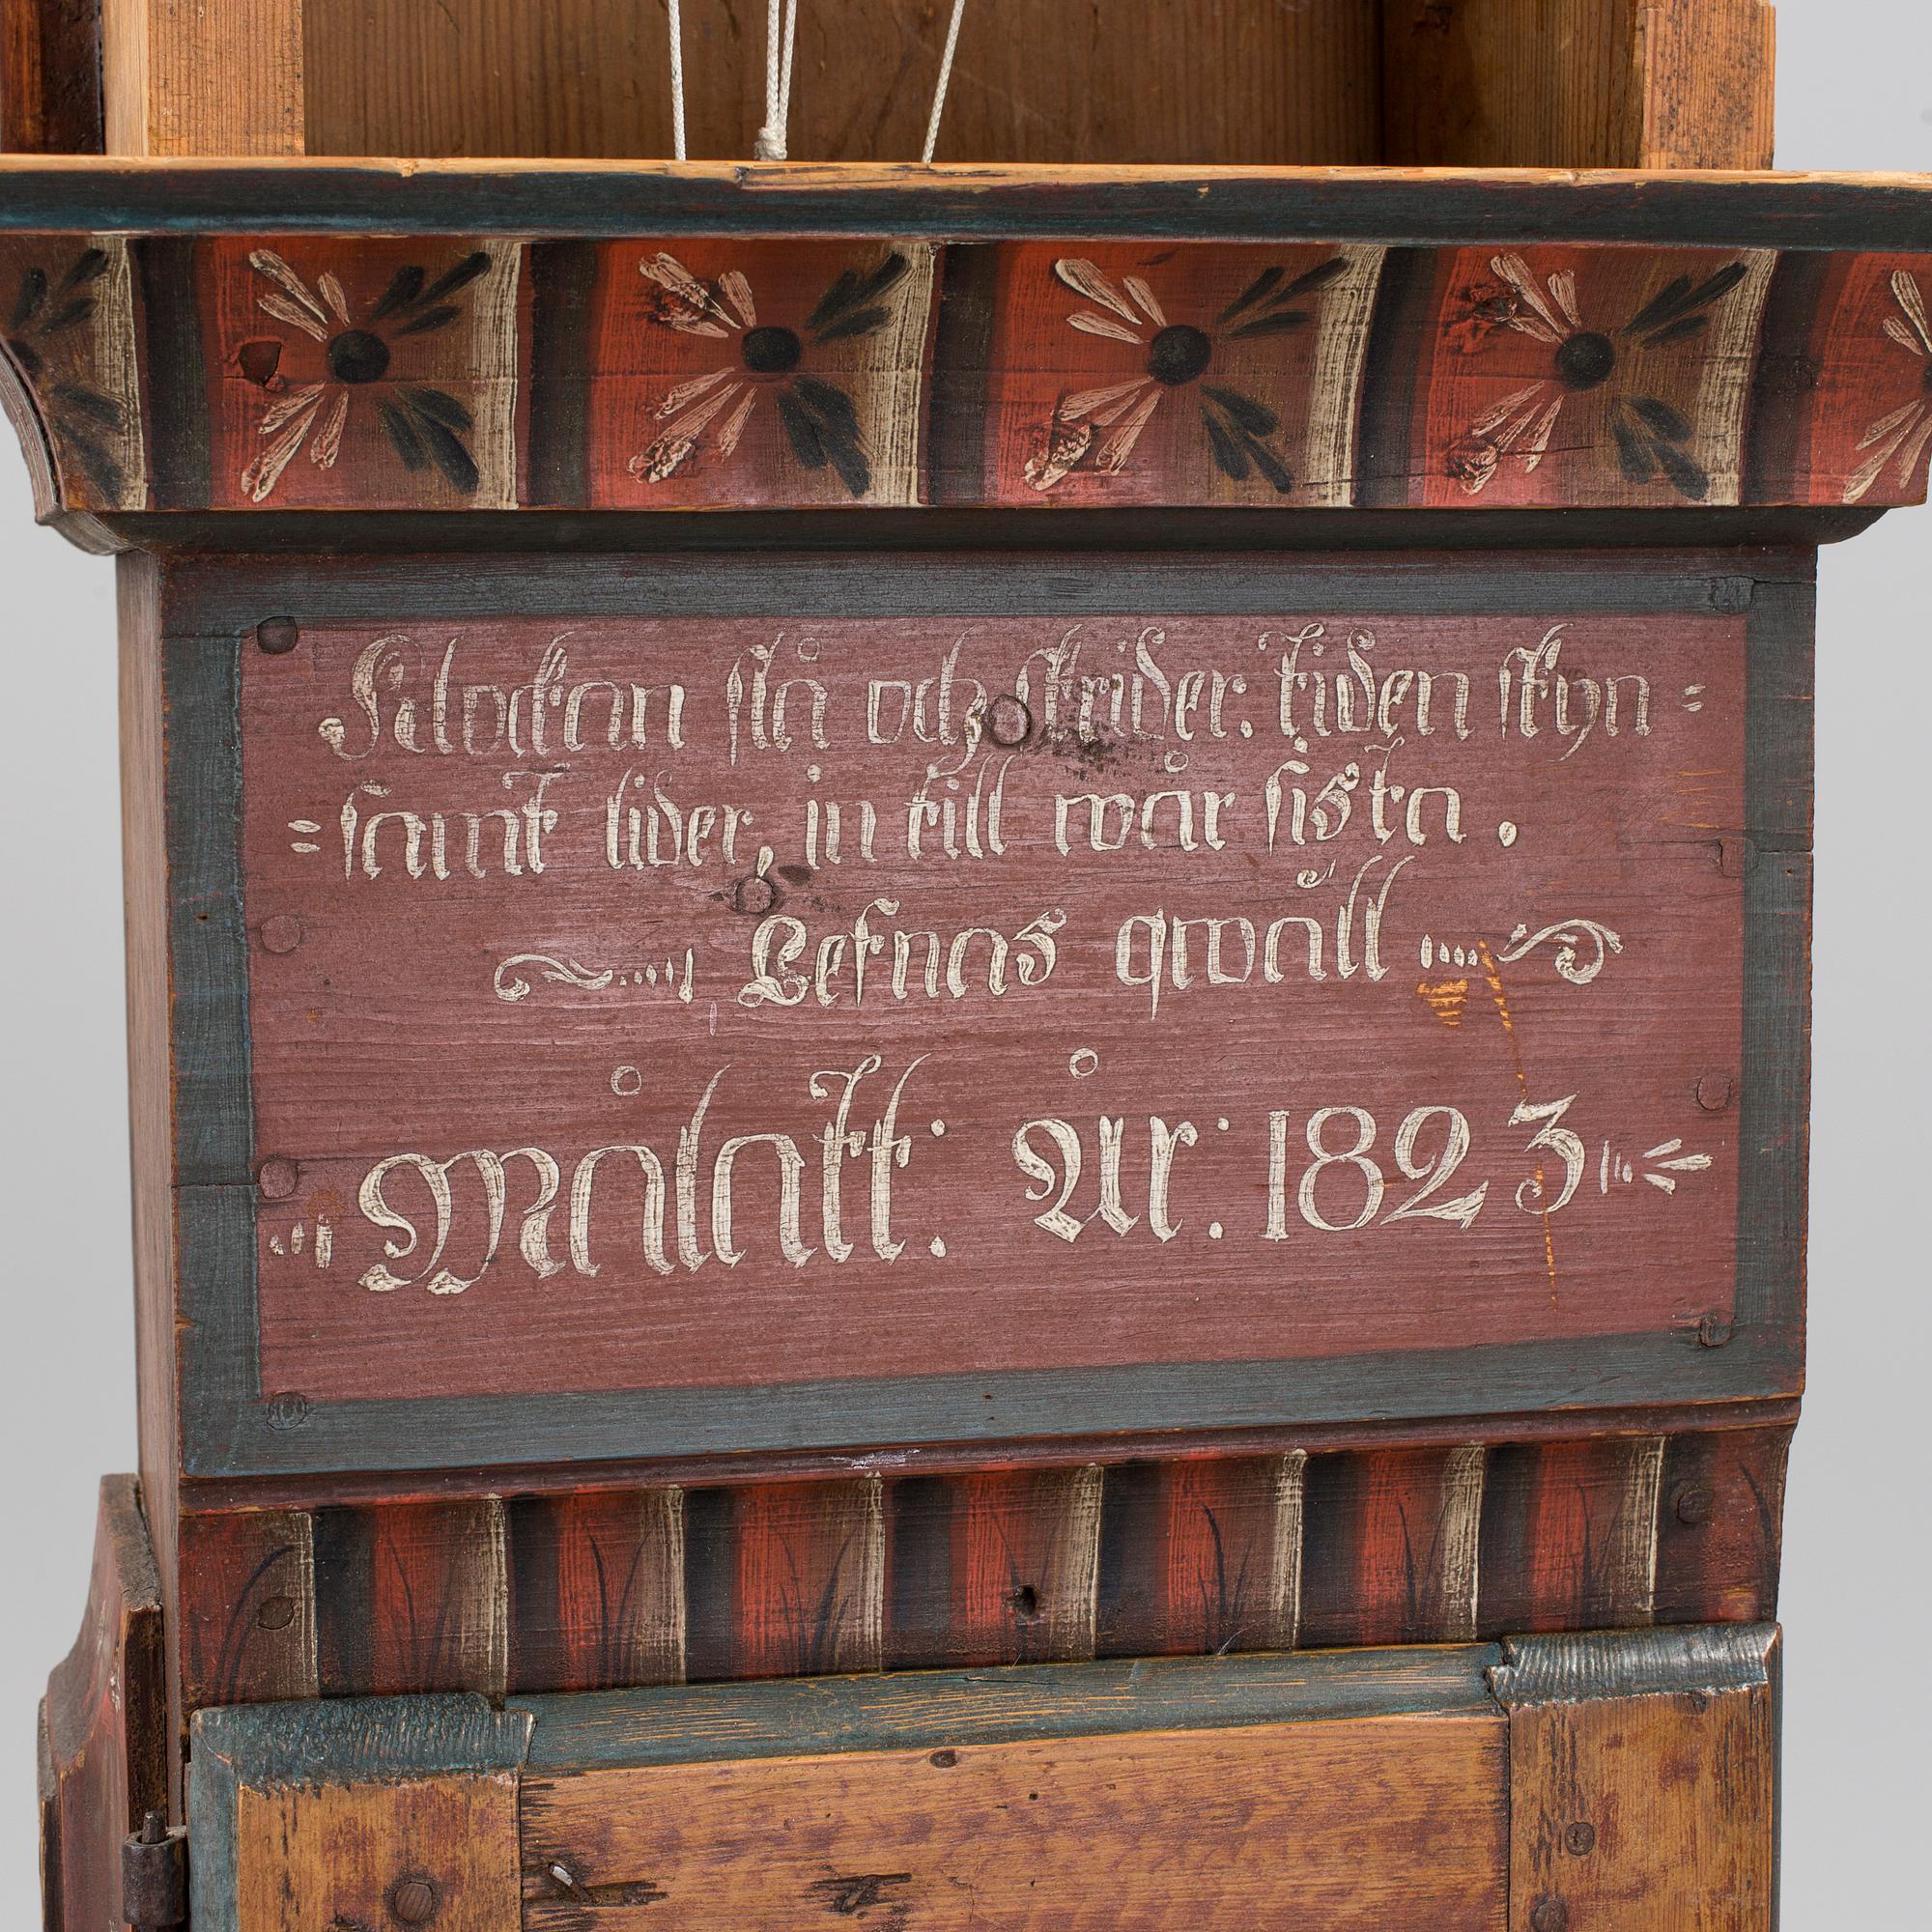 Klockan slå och skrider. tiden skyn=
=samt lider, in till wår sista.
Lefnas qwäll
Målatt: År: 1823